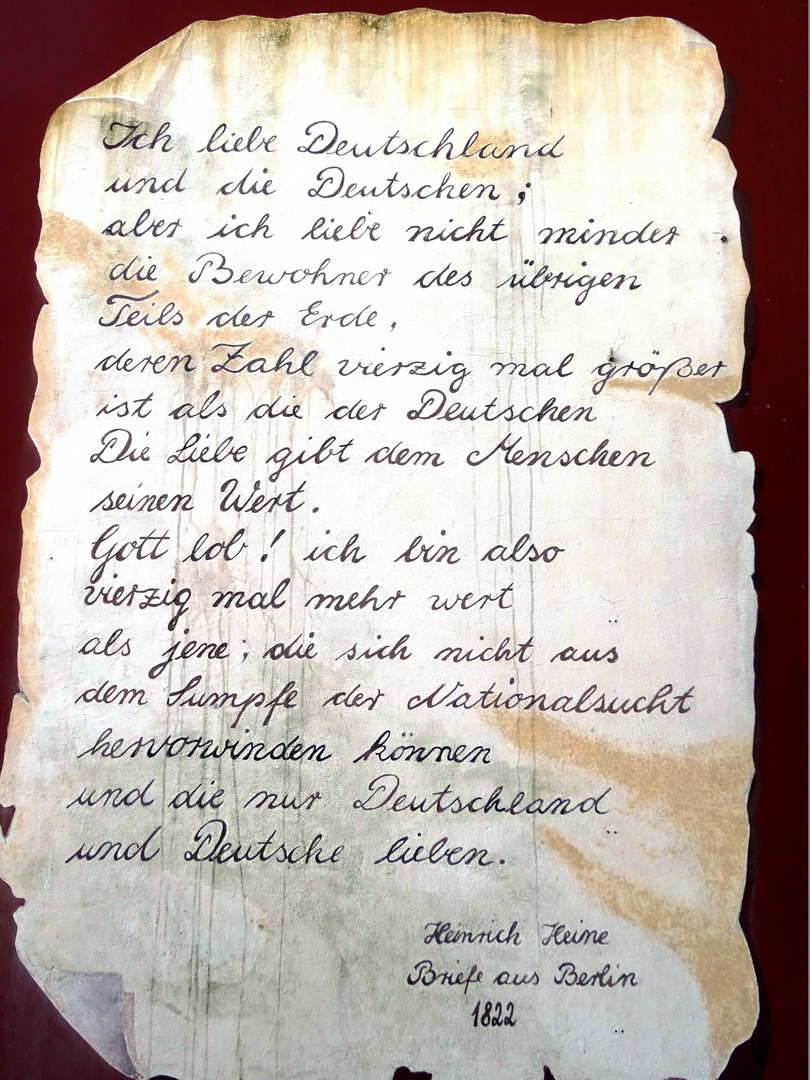 Ich liebe Deutschland
und die Deutschen;
aber ich liebe nicht minder
die Bewohner des übrigen
Teils der Erde,
deren Zahl vierzig mal größer
ist als die der Deutschen
Die Liebe gibt dem Menschen
seinen Wert.
Gott lob! ich bin also
vierzig mal mehr wert
als jene; die sich nicht aus
dem Sumpfe der Nationalsucht
hervorwinden können
und die nur Deutschland
und Deutsche lieben.
Heinrich Heine
Briefe aus Berlin
1822